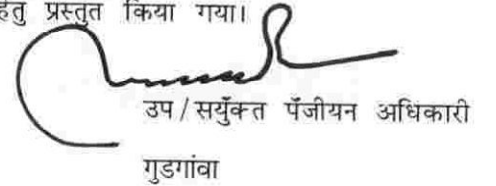 हेतु प्रस्तुत किया गया।
उप / सयुँक्त पँजीयन अधिकारी
गुडगांवा